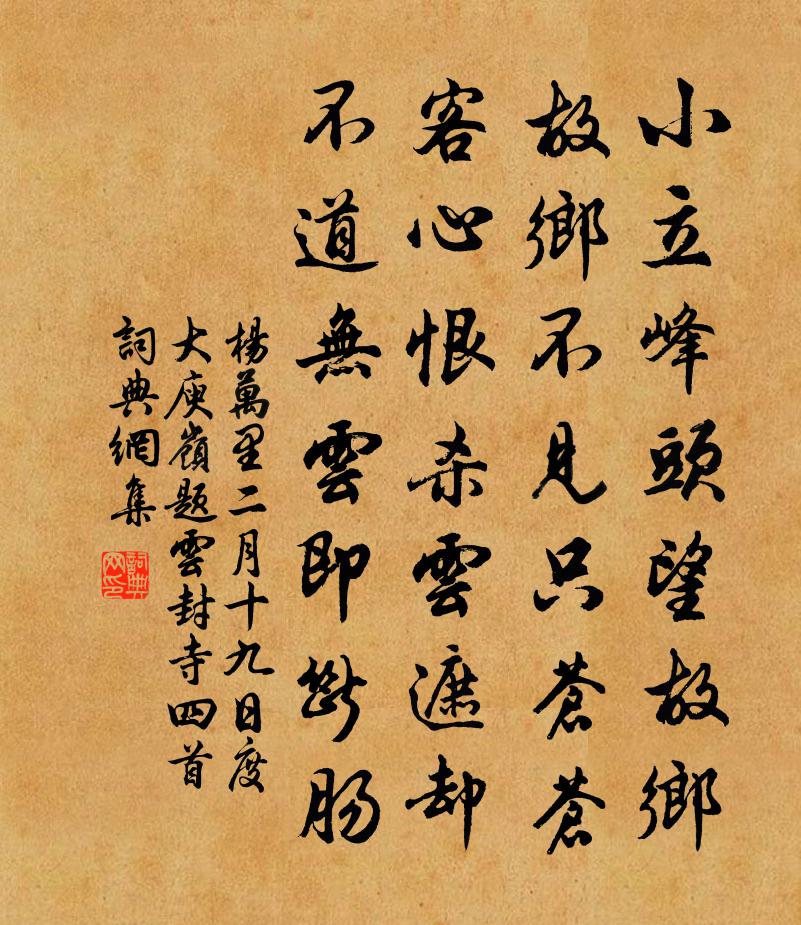 小立峰頭望故鄉
故鄉不見只蒼蒼
客心恨杀雲遮却
不道無雲即斷肠
楊萬里二月十九日度
大庾嶺题雲封寺四首
詞典網集
詞典网印